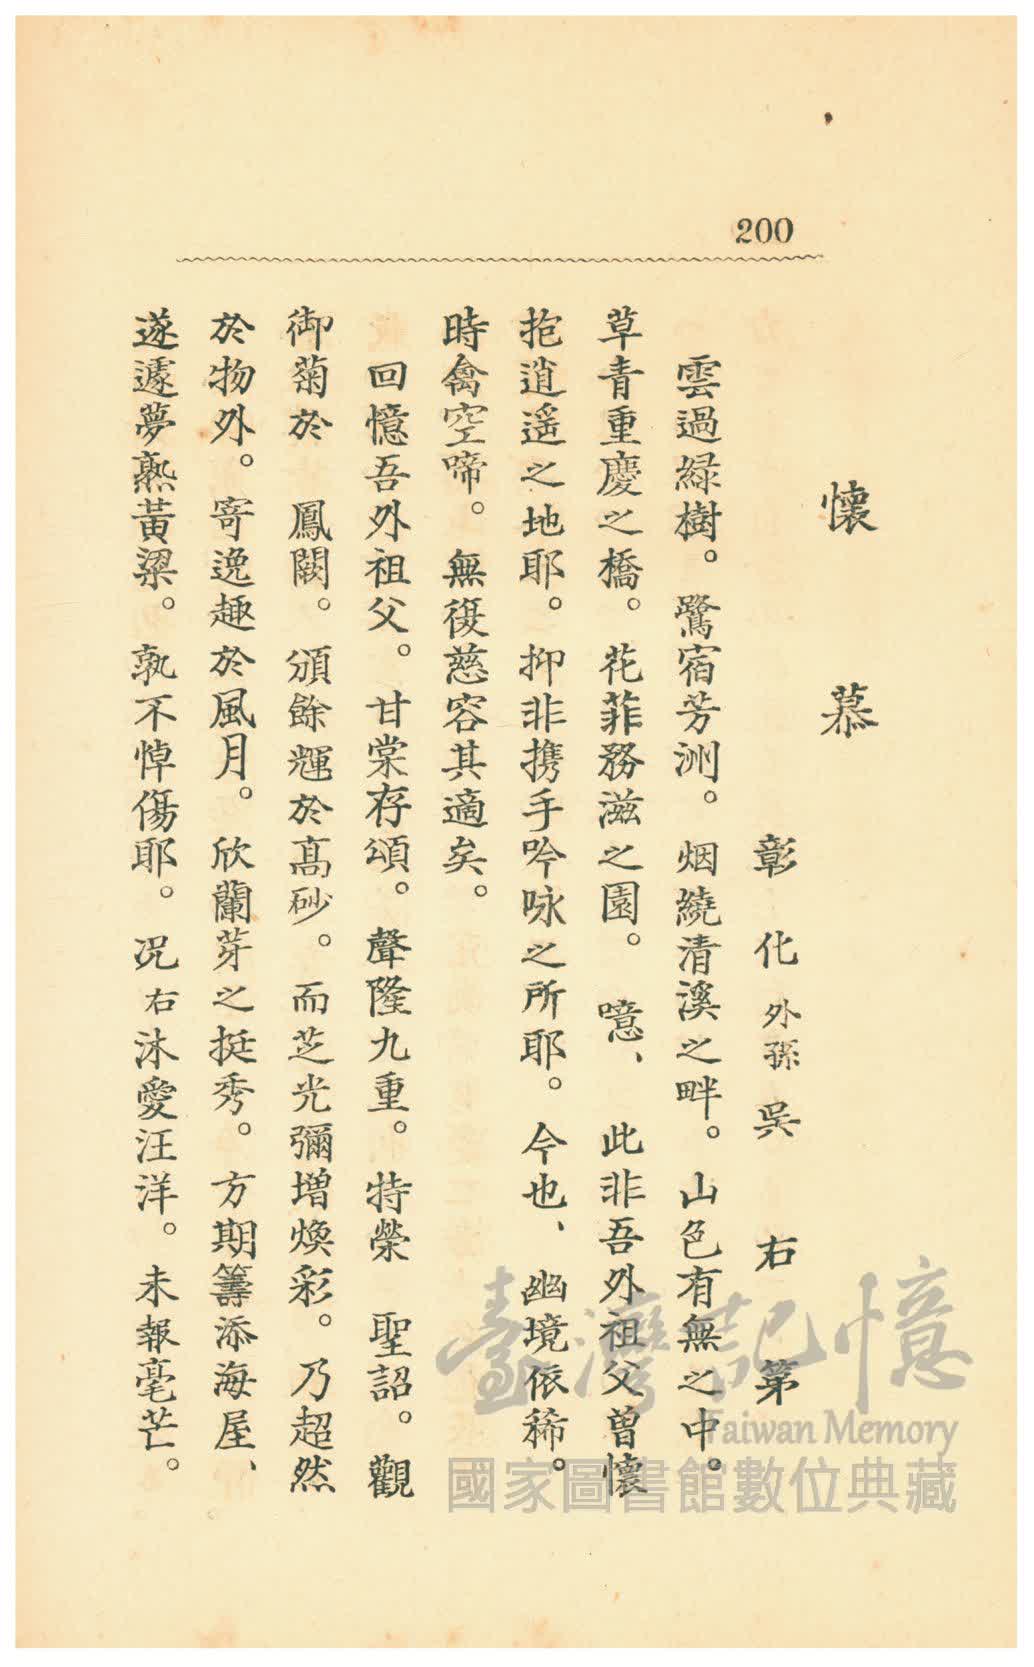 200
懷慕
彰化 外孫 吳右第
雲過綠樹。鷺宿芳洲。烟繞清溪之畔。山色有無之中。
草青重慶之橋。花菲務滋之園。噫、此非吾外祖父曾懷
抱逍遥之地耶。抑非携手吟咏之所耶。今也、幽境依稀。
時禽空啼。無復慈容其適矣。
回憶吾外祖父。甘棠存頌。聲隆九重。特榮 聖詔。觀
御菊於 鳳闕。頒餘輝於髙砂。而芝光彌增煥彩。乃超然
於物外。寄逸趣於風月。欣蘭芽之挺秀。方期籌添海屋、
遂遽夢熟黃粱。孰不悼傷耶。况右沐愛汪洋。未報毫芒。
臺灣記憶
Taiwan Memory
國家圖書館數位典藏